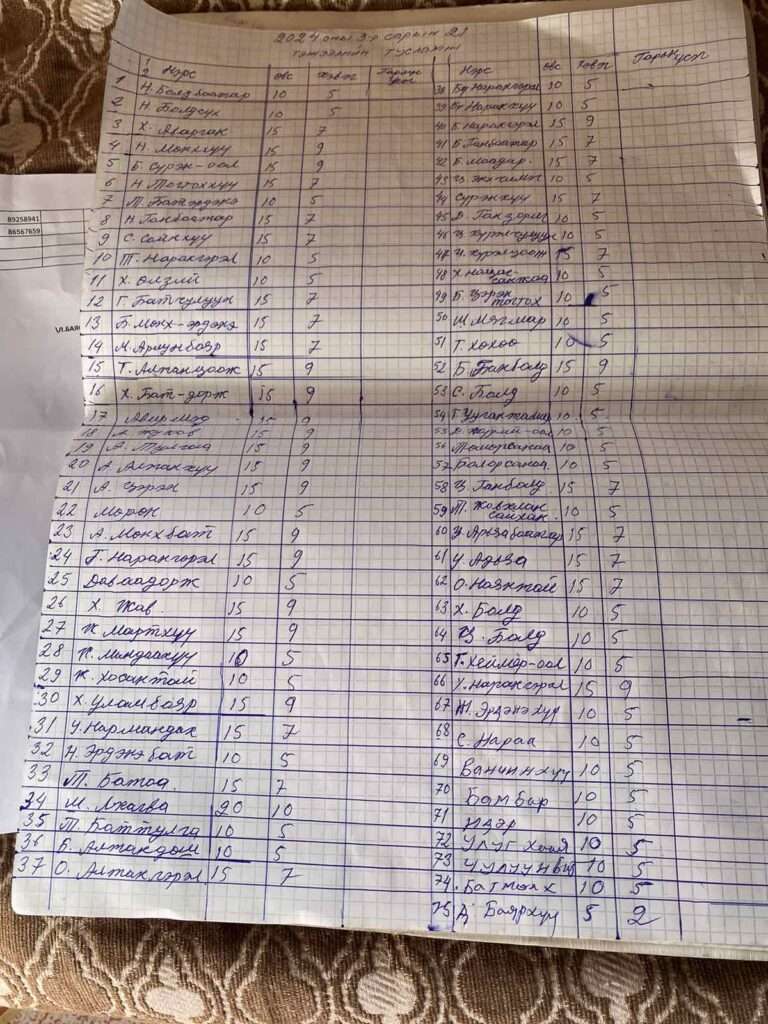 2024 оны 3-р сарын 21
тэжээлийн тусламж
Нэрс овс хэвэг Гарын үсэг
1 Н. Болдбаатар 10 5
2 Н. Болдсүх 10 5
3 Х. Аварган 15 7
4 Н. Мөнххүү 15 9
5 Б. Сүрэн-оол 15 9
6 Н. Тогтоххүү 15 7
7 М. Бат-эрдэнэ 10 5
8 Н Ганбаатар 15 7
9 С. Сайнхүү 15 7
10 Т. Нарангэрэл 10 5
11 Х. Өлзий 10 5
12 Г. Батчулуун 15 7
13 Б. Мөнх-эрдэнэ 15 7
14 М. Ариунбаяр 15 7
15 Т. Алтанцоож 15 9
16 Х. Бат-дорж 15 9
17 9
18 15 9
19 А. Тулгаа 15 9
20 А. Алтанхүү 15 9
21 А. Цэрэн 15 9
22 Мөрөн 10 5
23 А. Мөнхбат 15 9
24 Г. Нарангэрэл 15 9
25 Даваадорж 10 5
26 Х. Жав 15 9
27 Ж Мартхүү 15 9
28 Ж. Мандаахүү 10 5
29 Ж. Хосантай 10 5
30 Х. Уламбаяр 15 9
31 У. Нармандах 15 7
32 Н. Эрдэнэбат 10 5
33 Т. Батаа 15 7
34 М. Лхагва 20 10
35 Т. Баттулга 10 5
36 Б. Алтандош 10 5
37 О. Алтангэрэл 15 7
Нэрс овс хэвэг Гарын үсэг
38 Бд Нарангэрэл 10 5
39 Нарахүү 10 5
40 Б. Нарангэрэл 15 9
41 Б. Ганбаатар 15 7
42 Б. Маадар 15 7
43 10 5
44 Сүрэнхүү 15 7
45 Д. Ганзориг 10 5
46 10 5
47 15 7
48 Х. Нацагсанжаа 10 5
49 Б. Цэрэнтогтох 10 5
50 Ш Мягмар 10 5
51 Т. Хөхөө 10 5
52 Б. Ганболд 15 9
53 С. Болд 10 5
54 10 5
55 10 5
56 Төмөрсанаа 10 5
57 Болорсанаа 10 5
58 Ц. Ганболд 15 7
59 Т. Жавхлансайхан 10 5
60 15 7
61 У. Адъяа 15 7
62 О. Наянтай 15 7
63 Х. Болд 10 5
64 Ц. Болд 10 5
65 Т. Хеймэр-оол 10 5
66 У. Нарангэрэл 15 9
67 Ж. Эрдэнэхүү 10 5
68 С. Нараа 10 5
69 Ванчинхүү 10 5
70 Бамбар 10 5
71 Идэр 10 5
72 Улуг хаая 10 5
73 10 5
74 Батмөнх 10 5
75 Д. Баярхүү 5 2
B9258941
B6567659